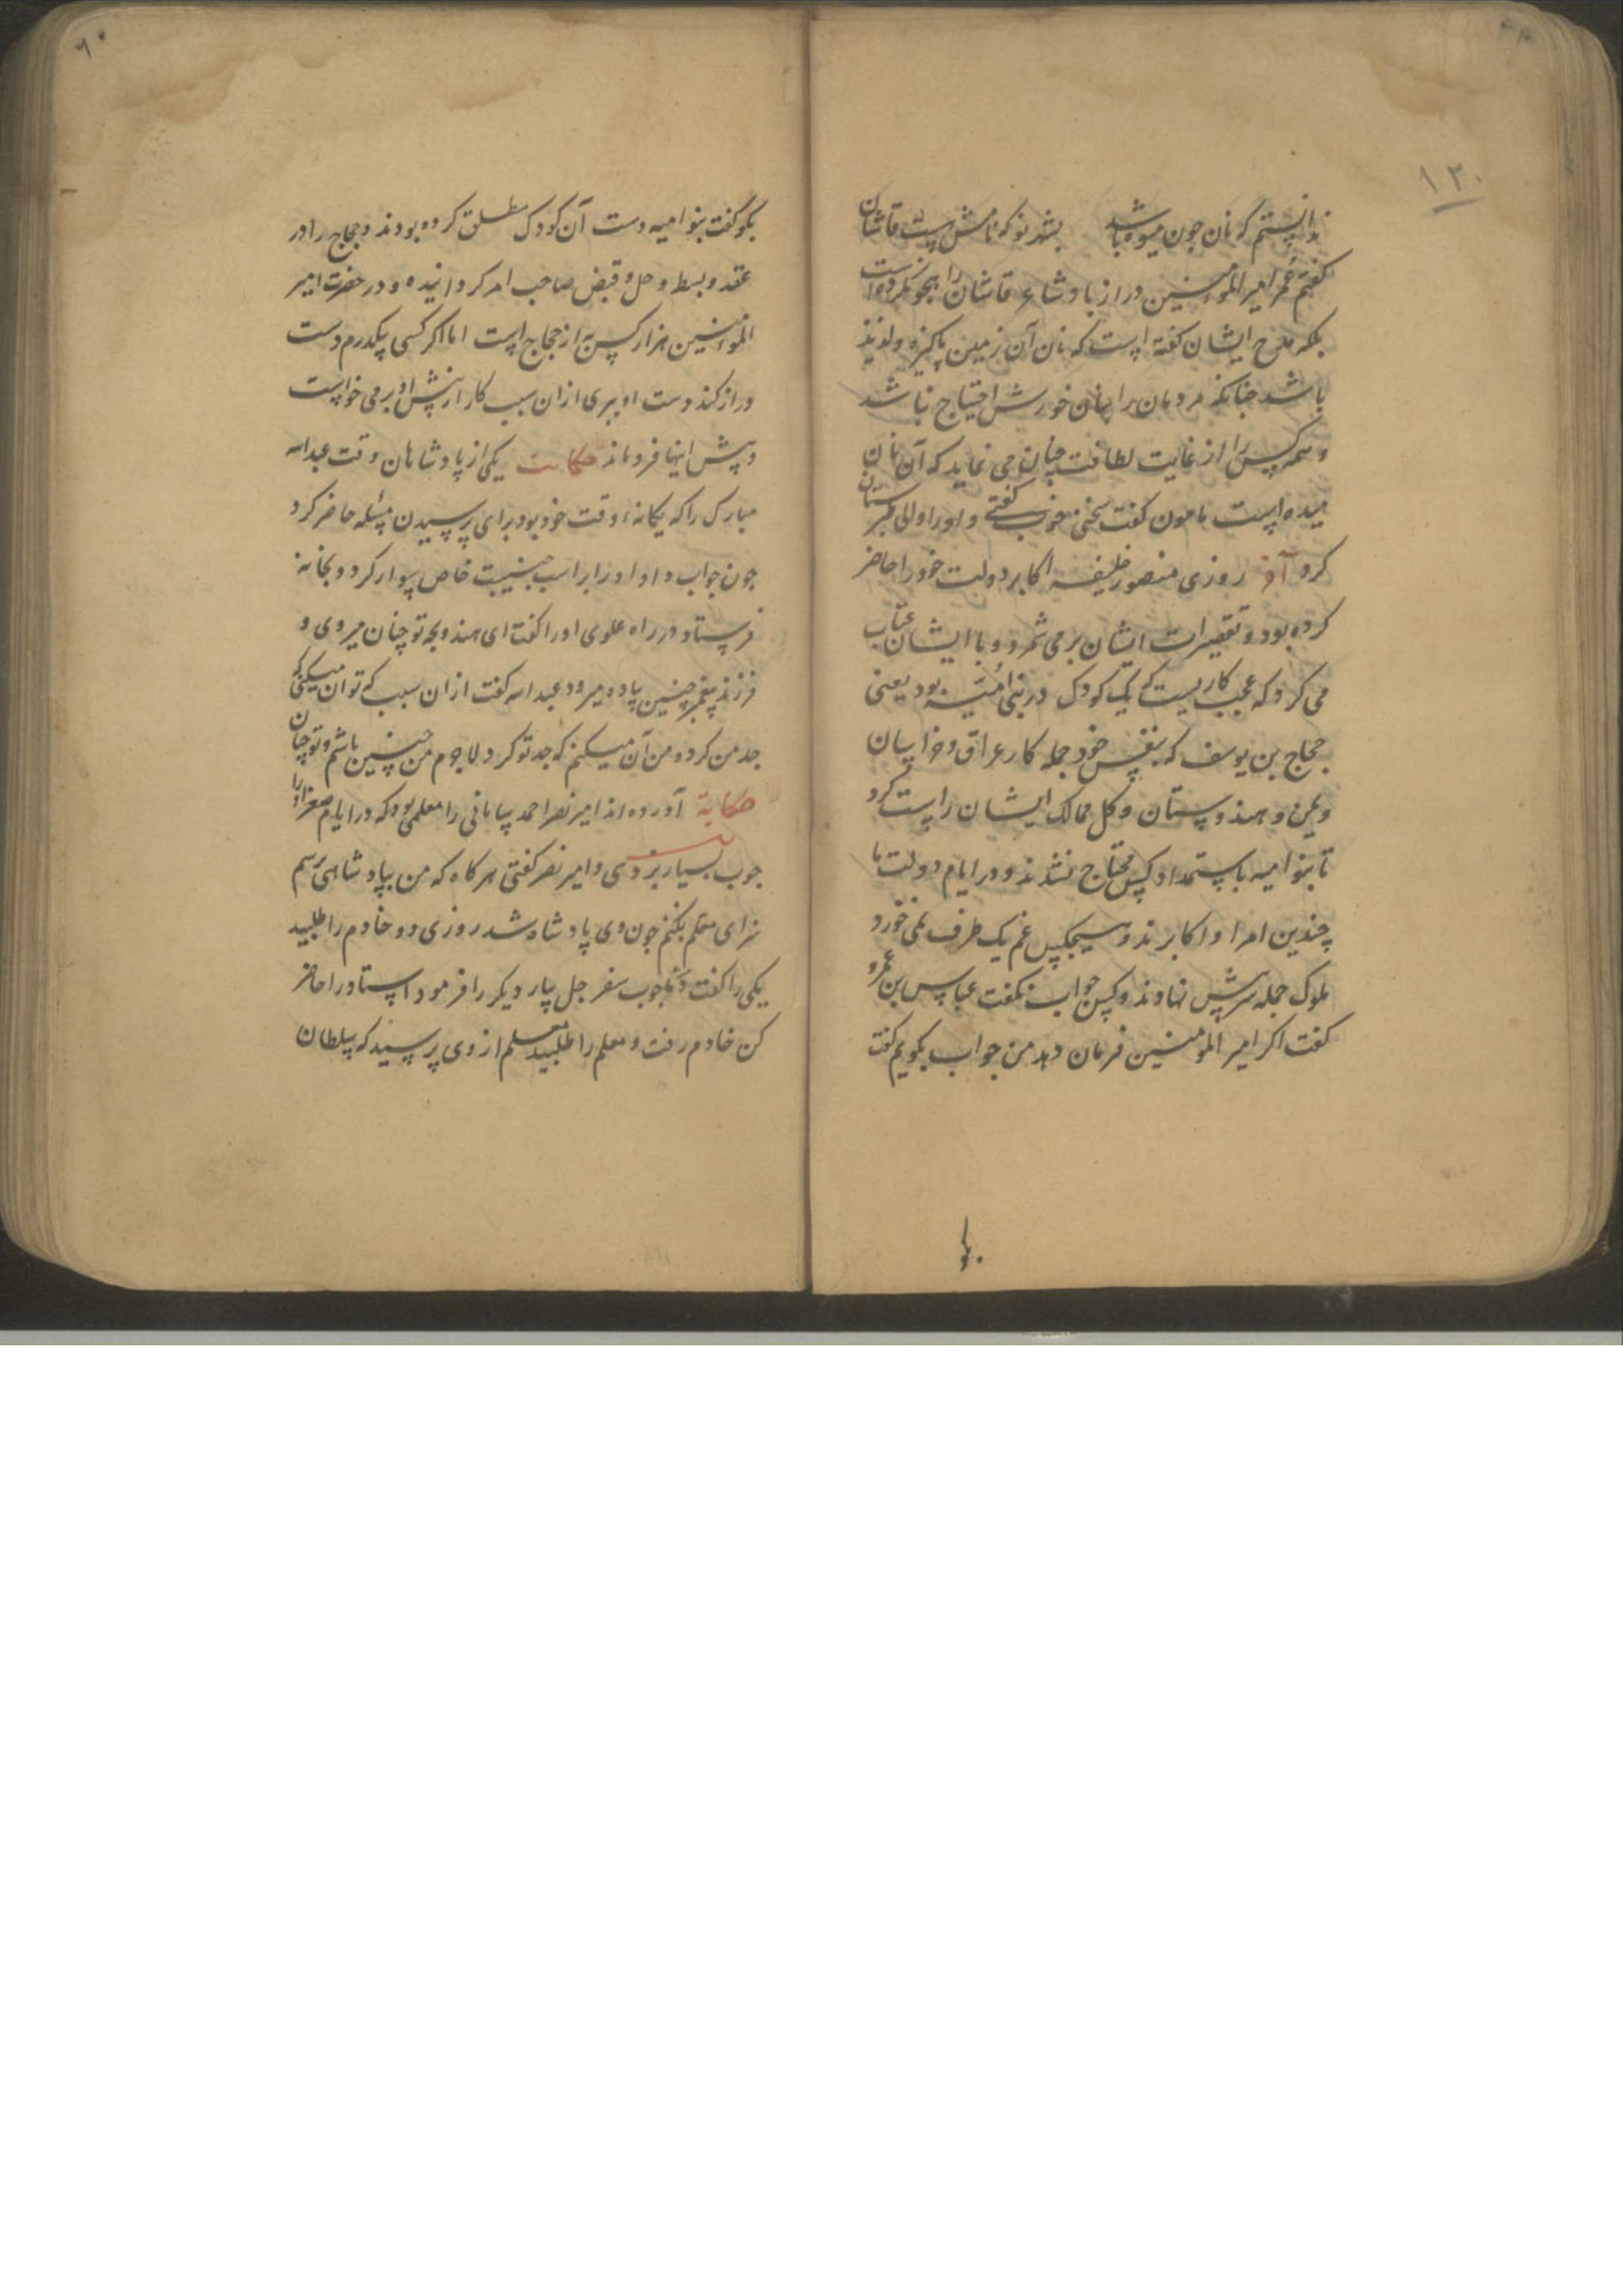 ۱۳۰
ندانستم که نان جون میوه باشد بشهر نو که نامش هست قاشان
کفتم عمر امیر المؤمنین دراز باد شاعر قاشان را هجو نکرده است
بلکه مدح ایشان کفته است که نان آن زمین پاکیزه و لذیذ
باشد جنانکه مردمان را بنان خورش احتیاج نباشد
و همه کس را از غایت لطافت چنان می نماید که آن نان
میده است مامون کفت سخنی خوب کفتی و او را والی طبرستان
کرد آخر روزی منصور خلیفه اکابر دولت خود را حاضر
کرده بود و تقصیرات ایشان بر می شمرد و با ایشان عتاب
می کرد که عجب کاریست که یک کودک در بنی امیّه بود یعنی
حجاج بن یوسف که بنفس خود جمله کار عراق و خراسان
و یمن و هندوستان و کل ممالک ایشان راست کرد
تا بنو امیه باستمداد کس محتاج نشدند و در ایام دولت ما
چندین امرا و اکابرند و هیچکس غم یک طرف نمی خورد
ملوک جمله سر پیش نهادند و کس جواب نکفت عباس بن عمرو
کفت اکر امیر المومنین فرمان دهد من جواب بکویم کفت
۶۰
بکو کفت بنو امیه دست آن کودک مطلق کرده بودند و حجاج را در
عقد و بسط و حل و قبض صاحب امر کردانیده و در حضرت امیر
المؤمنین هزار کس به از حجاج است اما اکر کسی یکدرم دست
دراز کند دست او ببری ازان سبب کار از پیش او بر می خواست
و پیش اینها فرو ماند حکایت یکی از پادشاهان وقت عبد الله
مبارک را که یکانهٔ وقت خود بود برای پرسیدن مسٔله حاضر کرد
جون جواب داد او را بر اسب جنیبت خاص سوار کرد و بخانه
فرستاد در راه علوی او را کفت ای هندو بچه تو چنان میروی و
فرزند پیغمبر چنین پیاده میرود عبد الله کفت ازان سبب که تو آن میکنی که
جد من کرد و من آن میکنم که جد تو کرد لاجرم من چنین باشم و تو چنان
حکایة آورده اند امیر نصر احمد سامانی را معلمی بود که در ایام صغر او را
جوب بسیار بزدی و امیر نصر کفتی هرکاه که من بپادشاهی برسم
سزای معلم بکنم جون وی پادشاه شد روزی دو خادم را طلبید
یکی را کفت جوب سفرجل بیار دیکر را فرمود استاد را حاضر
کن خادم رفت و معلم را طلبید معلم از وی پرسید که سلطان